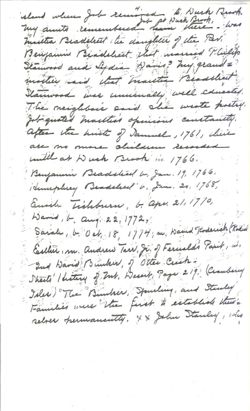 island when Job removed to Duck Brook,
Job at Duck Brook,
my aunts remembered
Martha Beadsheet the daughter of the Rev.
Benjamin Beadsheet that married Phillip
Stanwood and Lydia Davis? My grand=
mother said that Martha Beadsheet
Stanwood was unusually well educated.
The neighbors said she wrote poetry.
Job quoted Martha's opinions constantly.
After the birth of Samuel, 1761, there
are no more children recorded
until at Duck Brook in 1766.
Benjamin Beadsheet b. Jan. 19, 1766.
Humphrey Beadsheet b. Jan. 20, 1768,
Enoch Tishburn, b. Apr 21, 1770,
David, b. Aug. 22, 1772,
Sarah, b. Oct. 18, 1774, m. David Rodrick
Esther, m. Andrew Tarr, Jr. of Fernald's Point, m.
2nd David Bunker, of Otter Creek.
Street's History of Mt. Desert, Page 219. (Cranberry
Isles) "The Bunker, Spurling, and Stanley
Families were the first to establish them=
selves permanently. xx John Stanley, who